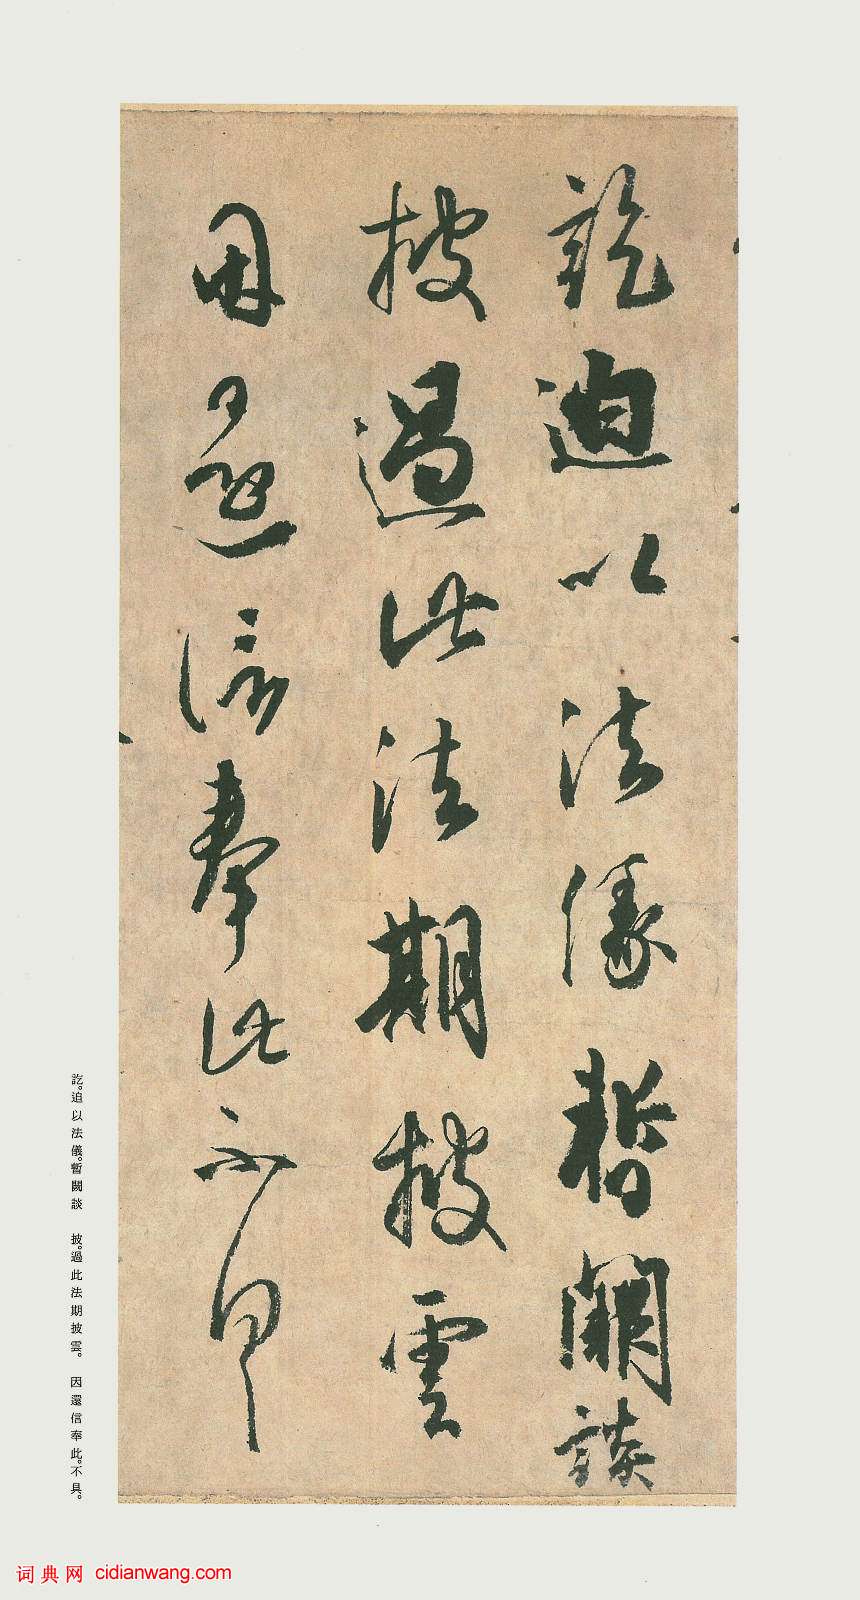 訖迫以法縁暫闕談
披過此法期披雲
因還信奉此不具
訖。迫以法儀。暫闕談　披。過此法期披雲。　因還信奉此。不具。
词典网 cidianwang.com